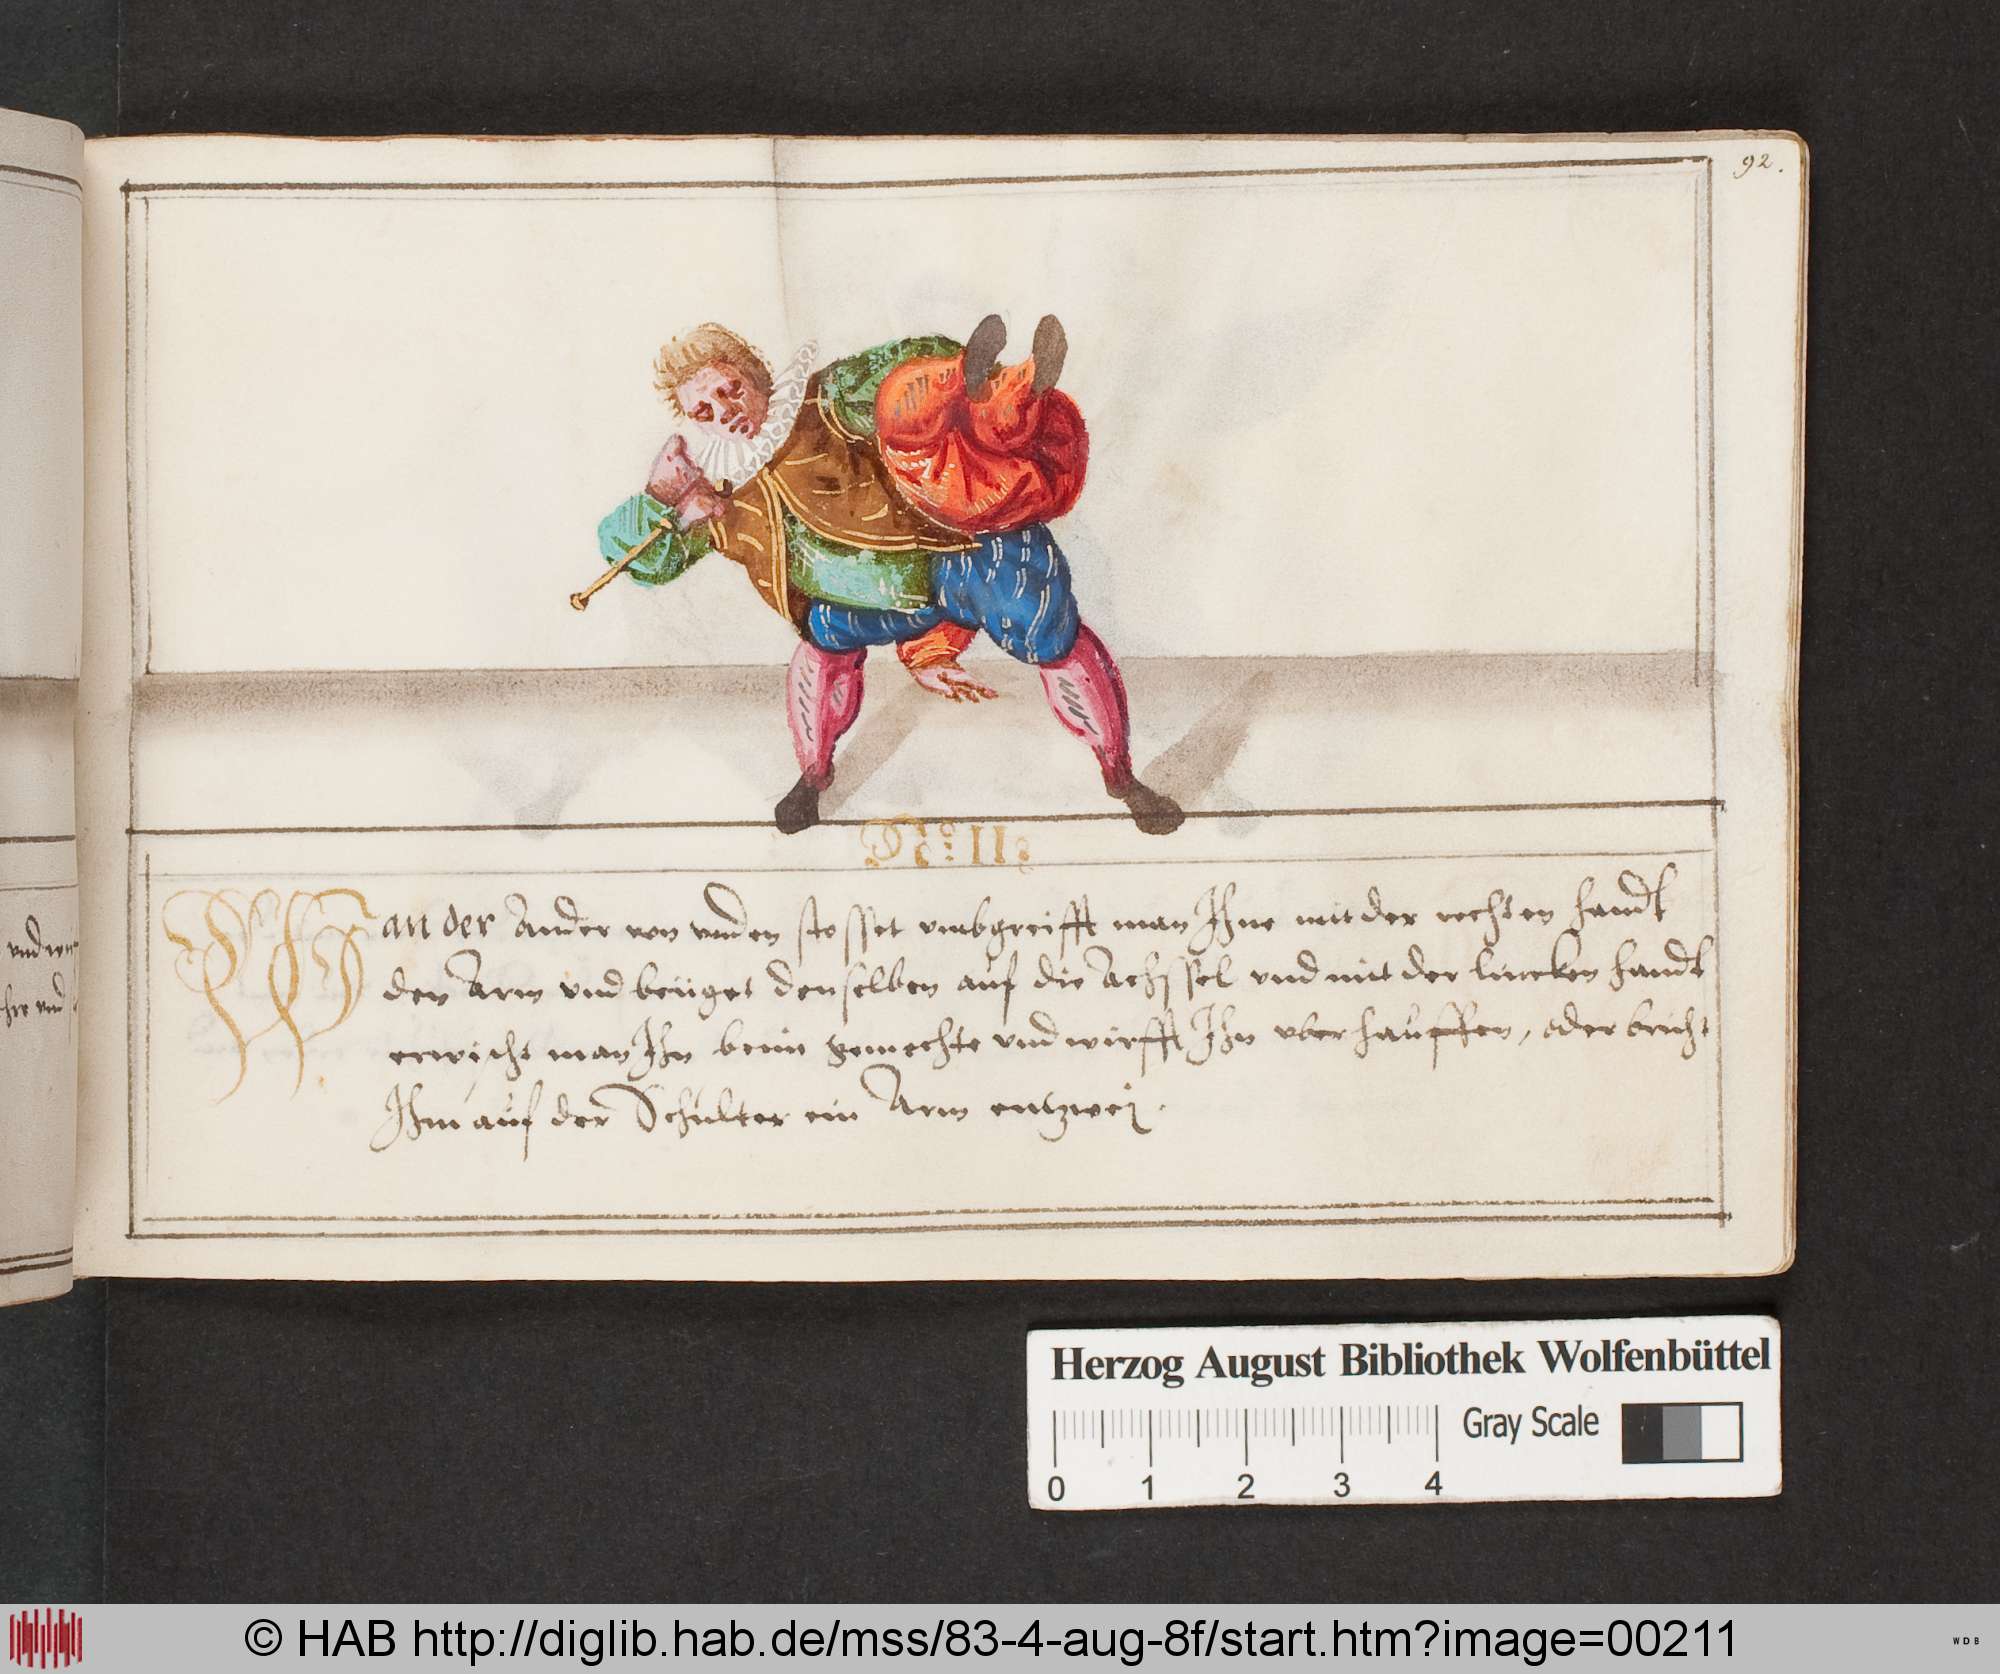 92.
Wan der Ander von vnden stosset vmbgreifft man Ihne mit der rechten handt
den Arm vnd beüget denselben auf die Achssel vnd mit der lincken handt
erwischt man Ihn beim gemechte vnd wirfft Ihn vber hauffen, oder bricht
Ihm auf der Schulter ein Arm entzwei.
vnd
vnd
Herzog August Bibliothek Wolfenbüttel
Gray Scale
0 1 2 3 4
© HAB http://diglib.hab.de/mss/83-4-aug-8f/start.htm?image=00211
WDB